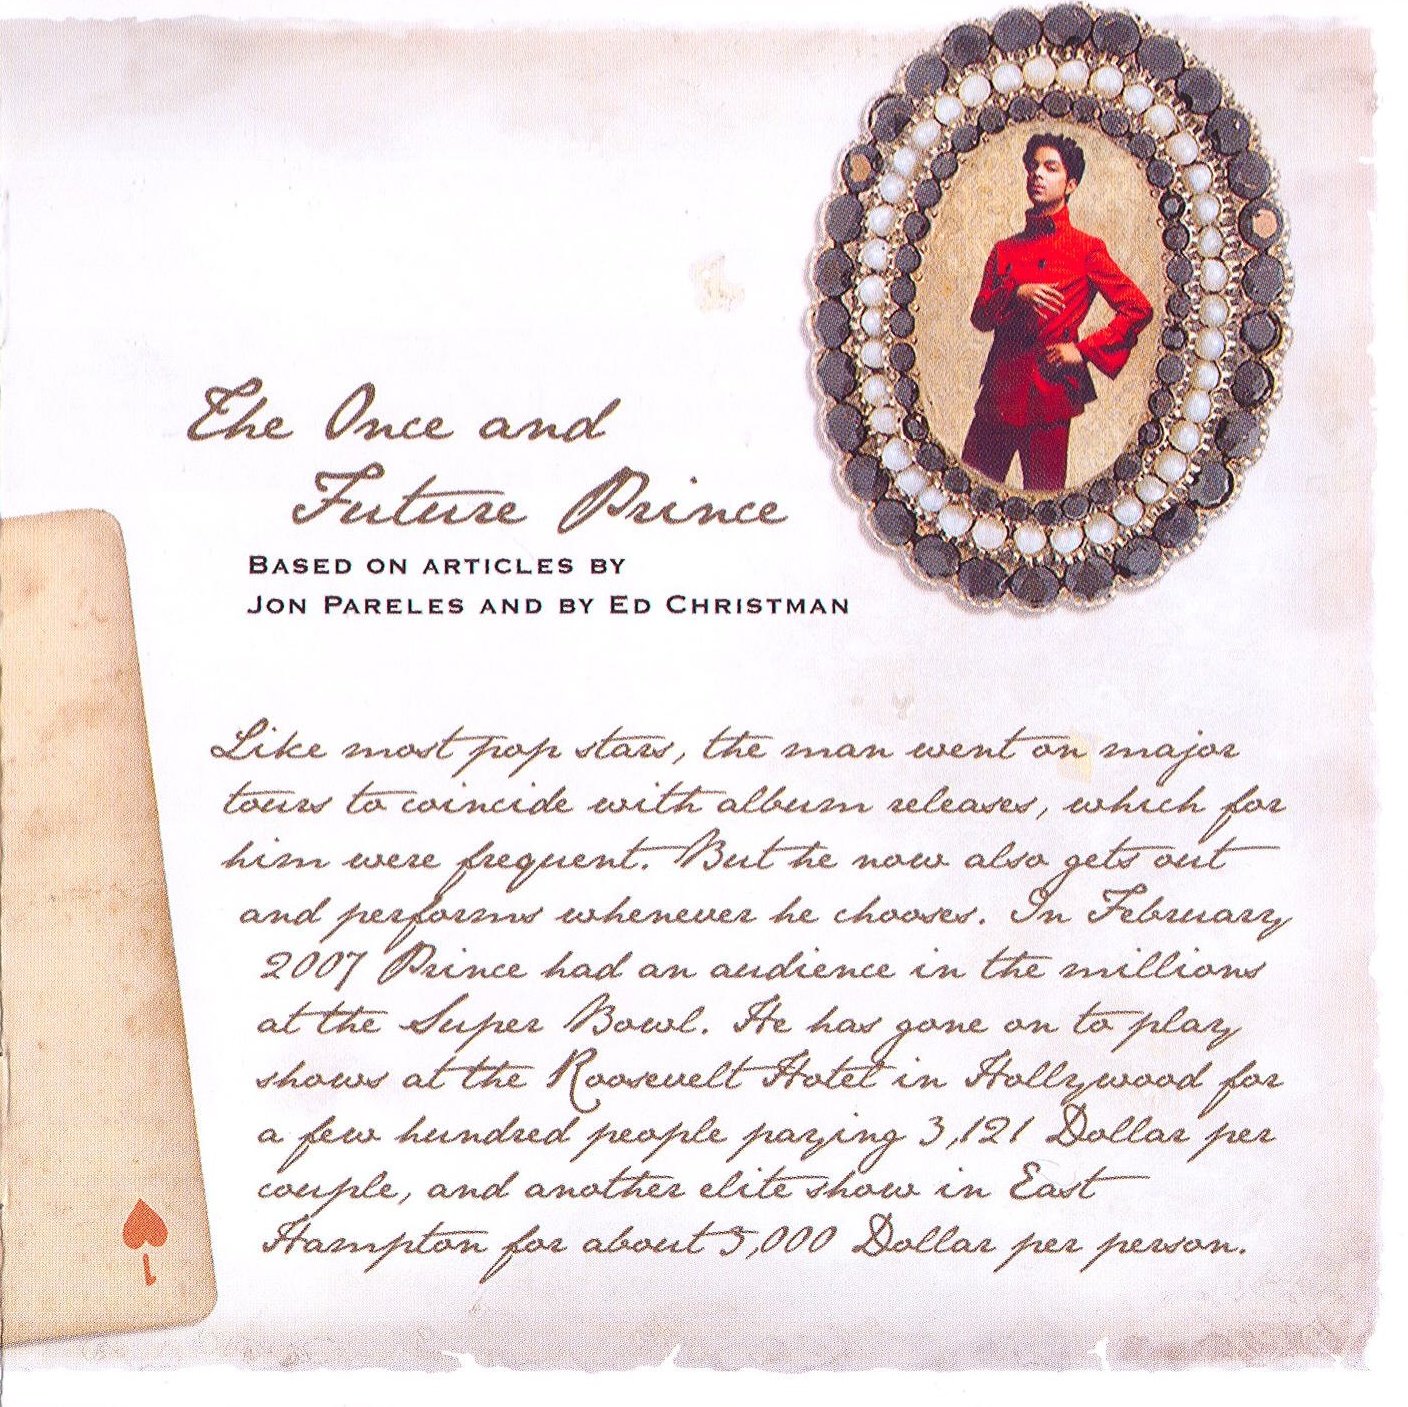 The Once and
Future Prince
BASED ON ARTICLES BY
JON PARELES AND BY ED CHRISTMAN
Like most pop stars, the man went on major
tours to coincide with album releases, which for
him were frequent. But he now also gets out
and performs whenever he chooses. In February
2007 Prince had an audience in the millions
at the Super Bowl. He has gone on to play
shows at the Roosevelt Hotel in Hollywood for
a few hundred people paying 3,121 Dollar per
couple, and another elite show in East
Hampton for about 3,000 Dollar per person.
1